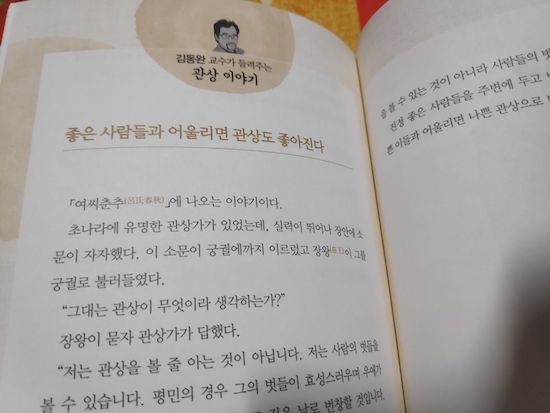 김동완 교수가 들려주는
관상 이야기
좋은 사람들과 어울리면 관상도 좋아진다
「여씨춘추(呂氏春秋)」에 나오는 이야기이다.
초나라에 유명한 관상가가 있었는데, 실력이 뛰어나 장안에 소
문이 자자했다. 이 소문이 궁궐에까지 이르렀고 장왕(莊王)이 그를
궁궐로 불러들였다.
“그대는 관상이 무엇이라 생각하는가?”
장왕이 묻자 관상가가 답했다.
“저는 관상을 볼 줄 아는 것이 아닙니다. 저는 사람의 벗들을
볼 수 있습니다. 평민의 경우 그의 벗들이 효성스러우며 우애가
날로 번창할 것입니다.
을 볼 수 있는 것이 아니라 사람들의 벗
진정 좋은 사람들을 주변에 두고
쁜 이들과 어울리면 나쁜 관상으로